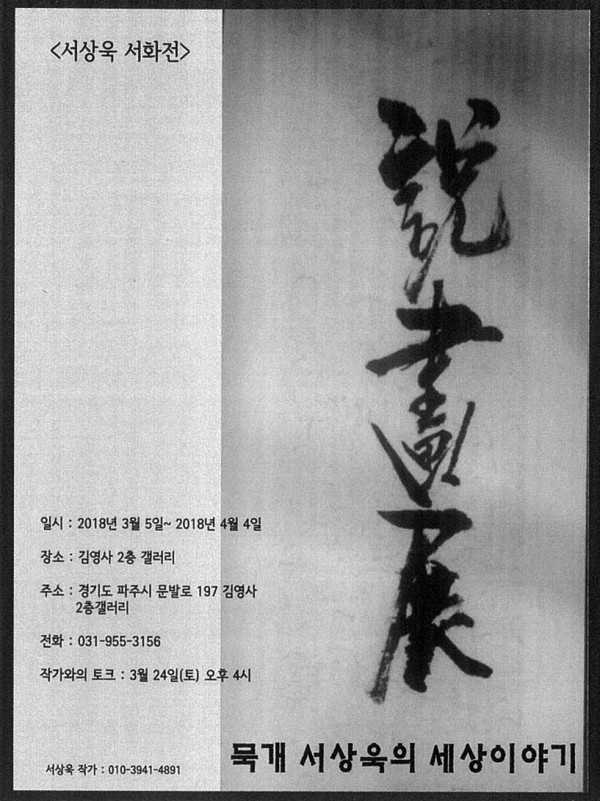 <서상욱 서화전>
說
畵
展
일시 : 2018년 3월 5일~ 2018년 4월 4일
장소 : 김영사 2층 갤러리
주소 : 경기도 파주시 문발로 197 김영사
2층갤러리
전화 : 031-955-3156
작가와의 토크 : 3월 24일(토) 오후 4시
서상욱 작가 : 010-3941-4891
묵개 서상욱의 세상이야기